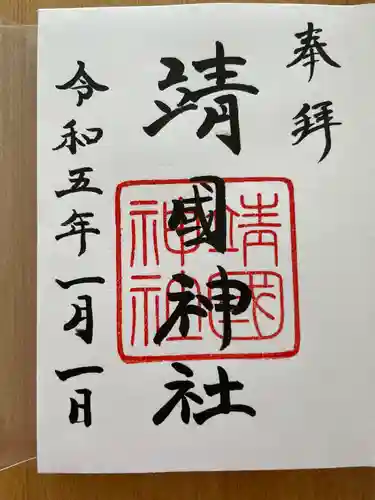 奉拝
靖國神社
靖國神社
令和五年一月一日